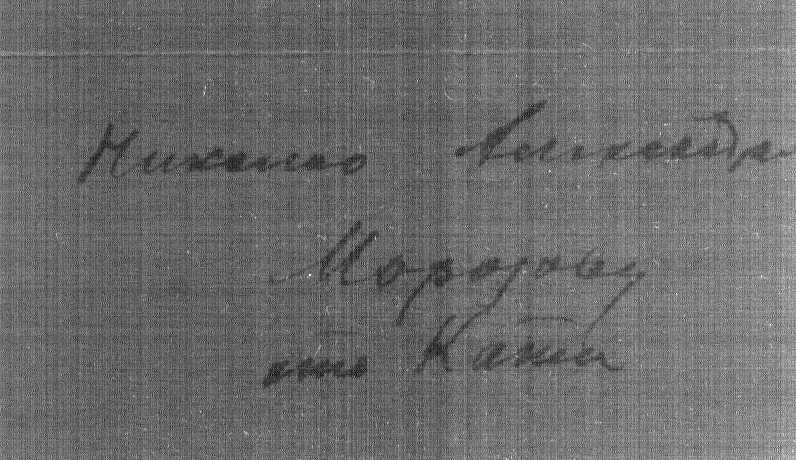 Николаю Александр
Морозову
отъ Кати